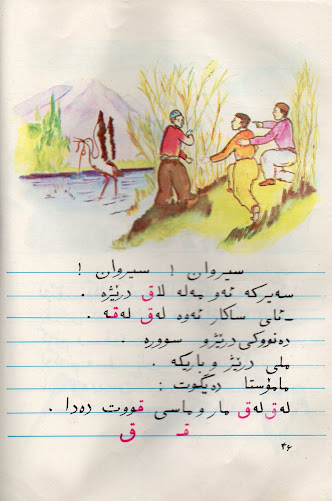 سیروان ! سیروان !
سەیرکە ئەو مەلە لاق درێژە .
ـ ئای ساکار ئەوە لەق لەقە .
دەنووکی درێژو سوورە .
ملی درێژ و باریکە .
مامۆستا دەیگوت :
لەق لەق مار و ماسی قووت دەدا .
قـ ق
٣٦